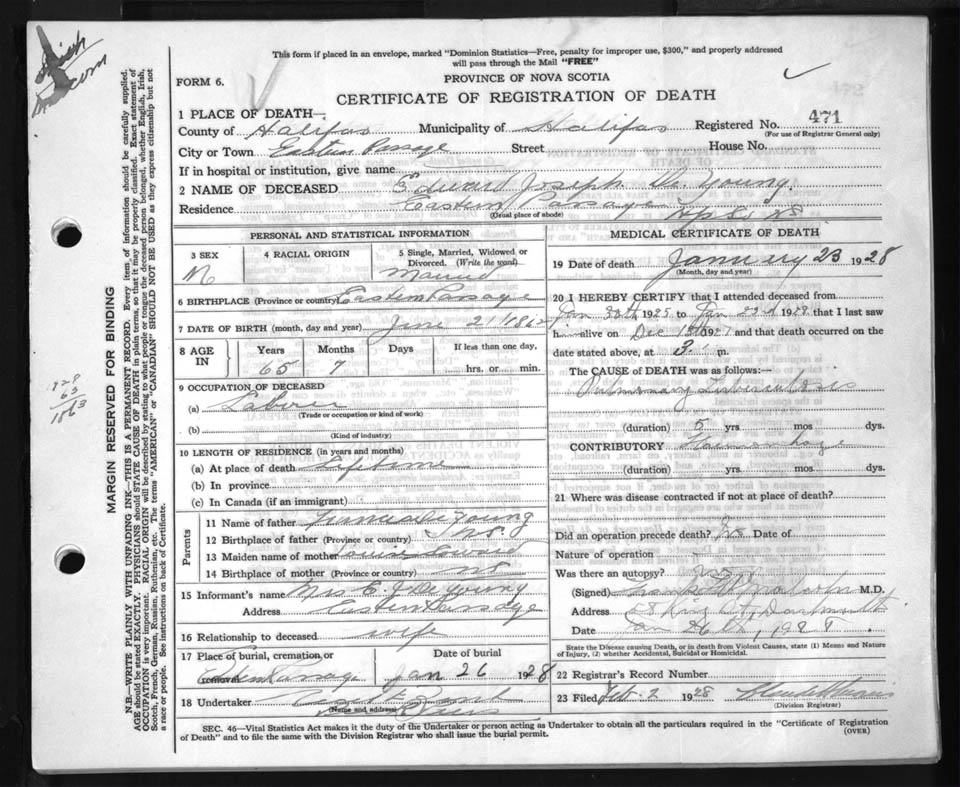 This form if placed in an envelope, marked "Dominion Statistics—Free, penalty for improper use, $300," and properly addressed
will pass through the Mail "FREE"
FORM 6.
PROVINCE OF NOVA SCOTIA
CERTIFICATE OF REGISTRATION OF DEATH
1 PLACE OF DEATH—
County of Halifax Municipality of Halifax Registered No. 471
(For use of Registrar General only)
City or Town Eastern Passage Street House No.
If in hospital or institution, give name
2 NAME OF DECEASED Edward Joseph De Young.
Residence Eastern Passage Hfx Co NS
(Usual place of abode)
PERSONAL AND STATISTICAL INFORMATION
3 SEX
M
4 RACIAL ORIGIN
5 Single, Married, Widowed or
Divorced. (Write the word)
Married
6 BIRTHPLACE (Province or country) Eastern Passage
7 DATE OF BIRTH (month, day and year) June 21 1862
8 AGE IN
Years Months Days If less than one day,
65 7 hrs. or min.
9 OCCUPATION OF DECEASED
(a) Labor
(Trade or occupation or kind of work)
(b)
(Kind of industry)
10 LENGTH OF RESIDENCE (in years and months)
(a) At place of death lifetime
(b) In province
(c) In Canada (if an immigrant)
Parents
11 Name of father De Young
12 Birthplace of father (Province or country) N.S.
13 Maiden name of mother
14 Birthplace of mother (Province or country) NS
15 Informant's name Mrs E. J. De Young
Address Eastern Passage
16 Relationship to deceased wife
17 Place of burial, cremation, or removal Date of burial
Eastern Passage Jan 26 1928
18 Undertaker
(Name and address)
MEDICAL CERTIFICATE OF DEATH
19 Date of death January 23 1928
(Month, day and year)
20 I HEREBY CERTIFY that I attended deceased from
Jan 30th 1925 to Jan 23rd 1928 that I last saw
h alive on Dec 13th 1927 and that death occurred on the
date stated above, at 3 m.
The CAUSE of DEATH was as follows:—
Pulmonary Tuberculosis
(duration) 5 yrs. mos dys.
CONTRIBUTORY
(duration) yrs. mos. dys.
21 Where was disease contracted if not at place of death?
Did an operation precede death? No Date of
Nature of operation
Was there an autopsy?
(Signed) M.D.
Address King St, Dartmouth
Date Jan 26th, 1928.
State the Disease causing Death, or in death from Violent Causes, state (1) Means and Nature
of Injury, (2) whether Accidental, Suicidal or Homicidal.
22 Registrar's Record Number
23 Filed Feb. 2 1928
(Division Registrar)
SEC. 46—Vital Statistics Act makes it the duty of the Undertaker or person acting as Undertaker to obtain all the particulars required in the "Certificate of Registration
of Death" and to file the same with the Division Registrar who shall issue the burial permit.
(OVER)
MARGIN RESERVED FOR BINDING
N.B.—WRITE PLAINLY WITH UNFADING INK—THIS IS A PERMANENT RECORD. Every item of information should be carefully supplied.
AGE should be stated EXACTLY. PHYSICIANS should STATE CAUSE OF DEATH in plain terms, so that it may be properly classified. Exact statement of
OCCUPATION is very important. RACIAL ORIGIN will be described by stating to what people or tongue the deceased person belonged, whether English, Irish,
Scotch, French, German, Russian, Ruthenian, etc. The terms "AMERICAN" or "CANADIAN" SHOULD NOT BE USED as they express citizenship but not
a race or people. See instructions on back of Certificate.
1928
63
1863